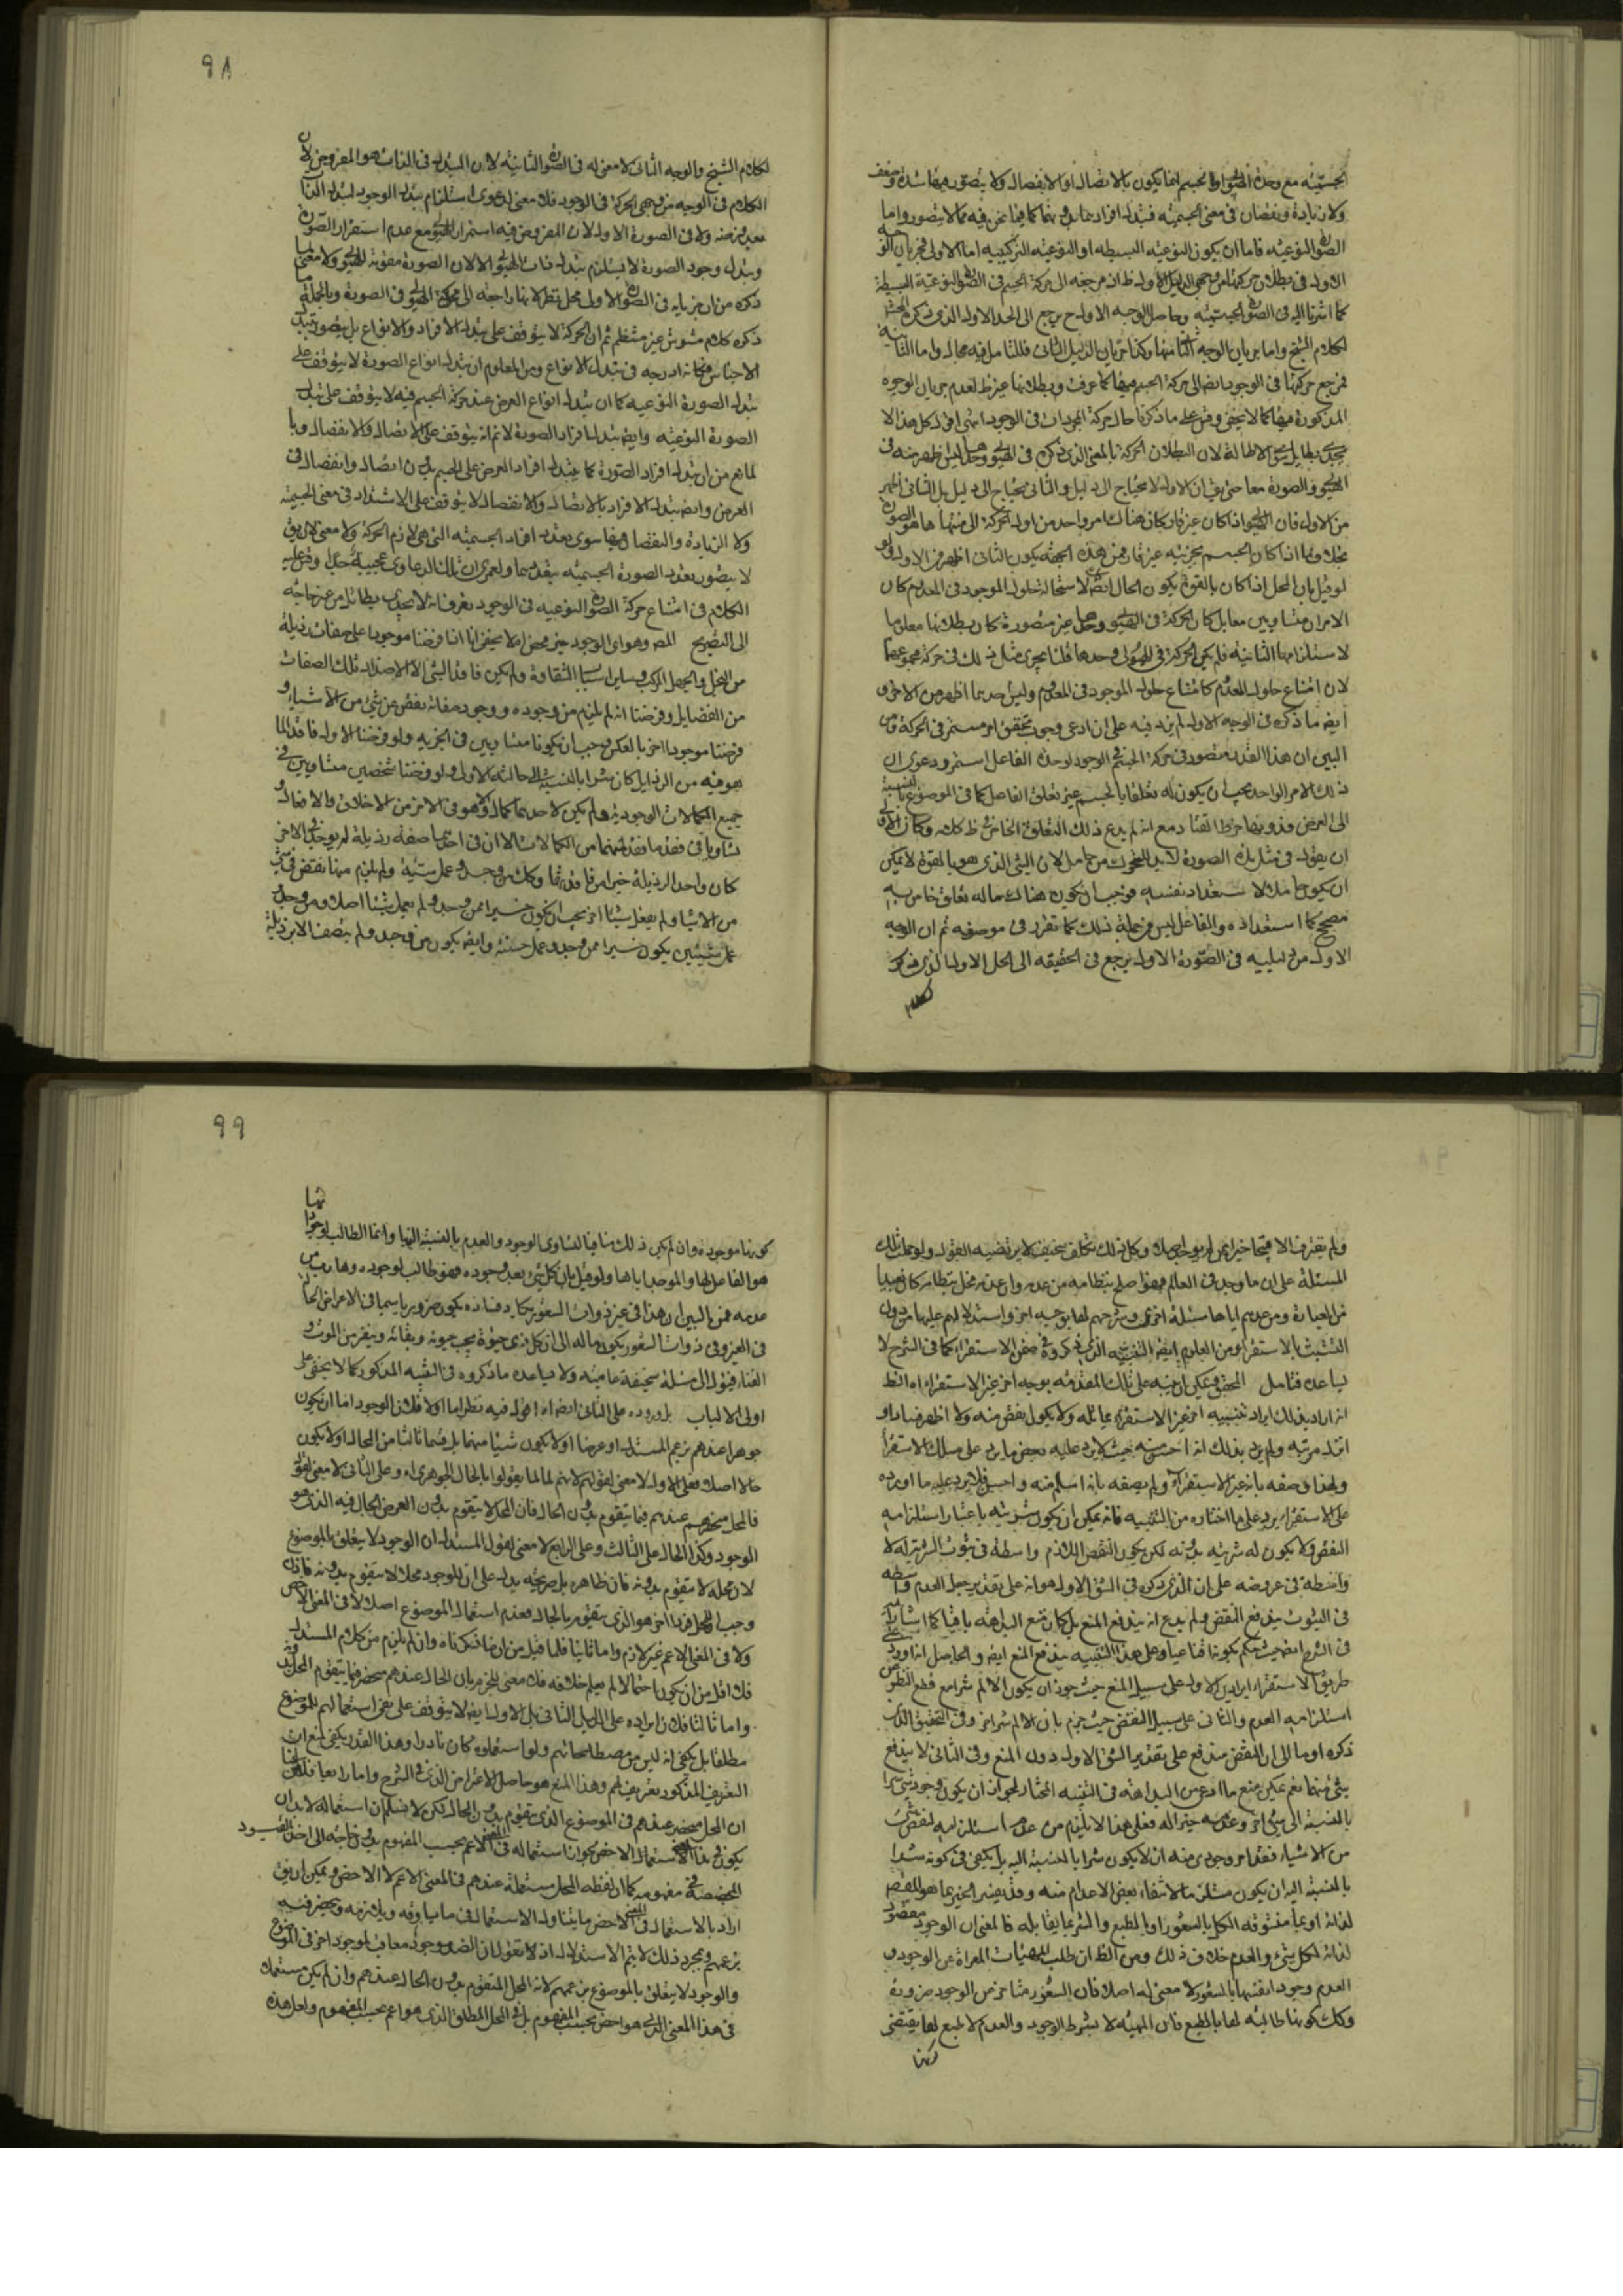 الجسميّة مع وحدة الهيولى والجسم انما يكون بالاتصال او الانفصال ولا يتصور فيها شدة وضعف
ولا زيادة ونقصان فى معنى الجسميّة فتبدل افرادها بدونهما كما فيما نحن فيه مما لا يتصور واما
الصور النوعيّة فاما ان يكون النوعيّة البسيطه او النوعيّة التركيبيه اما الاولى فجريان الوجه
الاول فى بطلان حركتها من وجهى الدليل الاول ظ اذ مرجعه الى حركة الجسم فى الصور النوعيّة البسيطة
كما اشرنا اليه فى الصور الجسميّه وحاصل الوجه الاول ح يرجع الى الحد الاول الذى ذكره المحشى
لكلام الشيخ واما جريان الوجه الثانى منها وكذا جريان الدليل الثانى فللتامل فيه مجال واما الثانية
فمرجع حركتها فى الوجود ايضا الى حركة الجسم فيها كما عرفت وبطلانها غير ظ لعدم جريان الوجوه
المذكورة فيها كما لا يخفى وقس على ما ذكرنا حال حركة المجردات فى الوجود انتهى اقول كل هذا الا
الهيولى والصورة معا حتى يقال ان الاول لا يحتاج الى دليل والثانى يحتاج الى دليل بل الثانى اظهر
من الاول فان الهيولى اذا كان غير قار كان هناك امر واحد من اول الحركة الى منتهاها هو الصورة
بخلاف ما اذا كان الجسم بجزئيه غير قار فمن هذه الجهة يكون الثانى اظهر من الاول ولو
لو قيل بان المحل اذا كان بالقوة يكون الحال ايضا لاستحالة حلول الموجود فى المعدوم كان
الامران متساويين معا بل كان الحركة فى الهيولى وحدها غير متصورة كان بطلانها معلوما
لاستلزامها الثانية فلم يكن الحركة فى الهيولى وحدها قلنا يجرى مثل ذلك فى حركة مجموعهما
لان امتناع حلول المعدوم كامتناع حلول الموجود فى المعدوم وليس احدهما اظهر من الاخر و
ايضا ما ذكره فى الوجه الاول لم يزد فيه على ان ادعى وجوب تحقق امر مستمر فى الحركة ومن
البين ان هذا القدر متصور فى حركة الجسم فى الوجود لوحدة الفاعل استمر ودعوى ان
ذلك الامر الواحد يجب ان يكون له تعلقا بالجسم غير تعلق الفاعل كما فى الموضوع بالنسبة
الى العرض فدونها خرط القتاد مع انه لم يدع ذلك التعلق الخاص فى ظ كلامه وكان الاولى
ان يقول فى مثل تلك الصورة لا بد للتحرك من حامل لان الشئ الذى هو بالقوة لا يمكن
ان يكون حاملا لاستعداد نفسه فوجب ان يكون هناك ما له تعلق خاص به
مصحح لاستعداده والفاعل ليس من جملة ذلك كما تقرر فى موضعه ثم ان الوجه
الاول من دليليه فى الصورة الاولى يرجع فى الحقيقه الى الحل الاول الذى ذكره
لكلام
٩٨
لكلام الشيخ والوجه الثانى لا معنى له فى الصور الثانية لان التبدل فى الذات هو المفروض لان
الكلام فى الوجه من وجهى الحركة فى الوجود فلا معنى لدعوى استلزام تبدل الوجود لتبدل الذات
بعد فرضه ولا فى الصورة الاولى لان المفروض فيه استمرار الهيولى مع عدم استقرار الصورة
وتبدل وجود الصورة لا يستلزم تبدل ذات الهيولى الا لان الصورة مقومة للهيولى ولا معنى لما
ذكره من ان جريانه فى الصور الاولى محل نظر لانها راجعة الى حركة الهيولى فى الصورة وبالجملة ما
ذكره كلام مشوش غير منتظم ثم ان الحركة لا يتوقف على تبدل الافراد والانواع بل يتصور بتبدل
الاجناس فكانه ادرجه فى تبدل الانواع ومن المعلوم ان تبدل انواع الصورة لا يتوقف على
تبدل الصورة النوعيه كما ان تبدل انواع العرض عند حركة الجسم فيه لا يتوقف على تبدل
الصورة النوعيّه وايضا تبدل افراد الصورة لا نم انه يتوقف على الاتصال والانفصال وما
المانع من ان يتبدل افراد الصورة كما يتبدل افراد العرض على الجسم بدون اتصال وانفصال فى
العرض وايضا تبدل الافراد بالاتصال والانفصال لا يتوقف على الاشتداد فى معنى الجسميّة
ولا الزيادة والنقصان فيها سوى تعدد افراد الجسميّة التى هى لازم الحركة ولا معنى لان يق
لا يتصور تعدد الصورة الجسميّه بتعددهما ولعمرى ان تلك الدعاوى عجيبة جدا وقس عليه
الكلام فى امتناع حركة الصور النوعيه فى الوجود تعرف انه لا يجدى بطائل من غير حاجة
الى التصريح المص وهو ان الوجود خير محض الا يخفى انا اذا فرضنا موجودا على صفات رذيلة
من البخل والجهل المركب وساير اسباب الشقاوة ولم يكن فاقدا لشئ الا لاضداد تلك الصفات
من الفضايل وفرضنا انه لم يلزم من وجوده ووجود صفاته نقص عن شئ من الاشياء و
فرضنا موجودا اخر بالعكس وجب ان يكونا متساويين فى الخيريه ولو فرضنا الاول فاقدا لما
هو فيه من الرذايل كان شرا بالنسبة الى حالته الاولى ولو فرضنا شخصين متساويين فى
جميع الكمالات الوجودية ولم يكن لاحدهما كمال هو فى الاخر من الاخلاق والافعال و
تساويا فى فقد ما فقد عنهما من الكمالات الا ان فى احدهما صفة رذيلة لم يوجد فى الاخر
كان واجد الرذيلة خيرا من فاقدها وكل من وجد وعمل سيّئة ولم يلزم منها نقص فى شئ
من الاشيا ولم يفعل شيئا اخر يجب ان يكون خيرا ممن وجد ولم يعمل شيئا اصلا ومن وجد
عمل سيئتين يكون خيرا ممن وجد وعمل حسنة وايضا يكون من وجد ولم يتصف الا برذيلة
ولم يقترف الا قبيحا خيرا ممن لم يوجد اصلا وكل ذلك تكلف سخيف لا يرتضيه العقول ولو حملت تلك
المسئلة على ان ما وجد فى العالم فهو اصلح بنظامه من عدمه وان عدمه مخل بنظامه كان بعيدا
من العبارة ومن عدهم اياها مسئلة اخرى وشرحهم لها بوجه اخر واستدلالهم عليها من دون
التشبث بالاستقراء ومن المعلوم ايضا التنبيه الذى ذكروه فى ضمن الاستقراء كما فى الشرح لا
يساعده فتامل المحقق ويمكن ان ينبه على تلك المقدمة بوجه اخر غير الاستقراء اه الظ
انه اراد بذلك ايراد تنبيه اخر غير الاستقراء يماثله ولا يكون انقص منه ولا اظهر فسادا و
اقل مرتبة ولم يرد بذلك انه احسن منه بحيث لا يرد عليه بعض ما يرد على مسلك الاستقراء
ولهذا وصفه بانه غير الاستقراء ولم يصفه بانه اسلم منه واحسن فلا يرد عليه ما اورده
على الاستقراء يرد على ما اختاره من التنبيه فانه يمكن ان يكون شريّته باعتبار استلزامه
النقص ولا يكون له شرية بدونه لكن يكون النقص اللازم واسطة فى ثبوت الشرية له لا
واسطة فى عروضه على ان الذى ذكره فى الشق الاول هو انه على تقدير جعل العدم واسطه
فى الثبوت يندفع النقض ولم يدع انه يندفع المنع بل كان منع البداهة باقيا كما اشار اليه
فى الشرح ايضا حيث حكم بكونه اقناعيا وعلى هذا التنبيه يندفع المنع ايضا والحاصل انه اورد على
طريق الاستقراء ايرادين الاول على سبيل المنع حيث جوز ان يكون الالم شرا مع قطع النظر عن
استلزامه العدم والثانى على سبيل النقض حيث جزم بان الالم شر اخر وفى التحقيق الذى
ذكره اومأ الى ان النقض مندفع على تقدير الشق الاول دون المنع وفى الثانى لا يندفع
شئ منهما نعم يمكن منع ما ادعى من البداهة فى التنبيه المختار لجواز ان يكون وجود شئ شرا
بالنسبة الى شئ اخر وعدمه خيرا له فعلى هذا لا يلزم من عدم استلزامه لنقص شئ
من الاشياء فقد امر وجودى منه ان لا يكون شرا بالنسبة اليه بل يكفى فى كونه شرا
بالنسبة اليه ان يكون مستلزما لانتفاء بعض الاعدام منه وقد يفسر الخير بما هو المقصود
لذاته او بما يتشوقه الكل بالشعور او بالطبع والشر بما يقابله فالمعنى ان الوجود مقصود
لذاته لكل شئ والعدم خلاف ذلك ومن الظ ان طلب المهيات المعراة عن الوجود و
العدم وجود انفسها بالشعور لا معنى له اصلا فان الشعور متاخر عن الوجود ضرورة
وكذلك كونها طالبة لها بالطبع فان المهيّة لا بشرط الوجود والعدم لا طبع لها يقتضى
كونها
٩٩
كونها موجودة وان لم يكن ذلك منافيا لتساوى الوجود والعدم بالنسبة اليها وانما الطالب لوجودها
هو الفاعل لها والموجد اياها ولو قيل بان كل شئ بعد وجوده فهو طالب لوجوده وهارب من
عدمه فمن البين ان هذا فى غير ذوات الشعور يكاد فساده يكون ضروريا سيما فى الاعراض الحالة
فى الغير وفى ذوات الشعور يكون ماله الى ان كل ذى حيوة يحب حيوته وبقائه ويتنفر من الموت و
الفناء فيؤل الى مسئلة سخيفة عاميّة ولا يساعده ما ذكروه فى التنبيه المذكور كما لا يخفى على
اولى الالباب بل وروده على الثانى ايضا اه اقول فيه نظر اما اولا فلان الوجود اما ان يكون
جوهرا عندهم بزعم المستدل او عرضا او لا يكون شيئا منهما بل قسما ثالثا من الحال او لا يكون
حالا اصلا فعلى الاول لا معنى لقولهم لانهم لم يقولوا بالحال الجوهرى اه وعلى الثانى لا معنى لقوله
فالمحل منحصر عندهم فيما يتقوم بدون الحال فان المحل لا يتقوم بدون العرض الحال فيه الذى هو
الوجود وكذا الحال على الثالث وعلى الرابع لا معنى لقول المستدل ان الوجود لا يتعلق بالموضوع
لان محله لا يتقوم بدونه فان ظاهره بل صريحه يدل على ان للوجود محلا لا يتقوم بدونه فاذن
وجب للمحل فردا اخر هو الذى يتقوم بالحال فعدم استعمال الموضوع اصلا لا فى المعنى الاخص
ولا فى المعنى الاعم غير لازم واما ثانيا فلما قيل من ان ما ذكرناه وان لم يلزم من كلام المستدل
فلا اقل من ان يكون احتمالا لم يعلم خلافه فلا معنى للجزم بان الحال عندهم منحصر فيما يتقوم المحل بدونه
واما ثالثا فلان ايراده على الدليل الثانى بل الاول ايضا لا يتوقف على نفى استعمالهم للموضوع
مطلقا بل يكفى انه ليس من مصطلحاتهم ولو استعملوه كان نادرا وهذا القدر يكفى لمنع ان
التعريف المذكور تعريف لهم وهذا المنع هو حاصل الاعتراض الذى فى الشرح واما رابعا فلانا سلمنا
ان المحل منحصر عندهم فى الموضوع الذى يتقوم بدون الحال لكن لا نسلم ان استعماله لا بد ان
يكون فى هذا الاستعمال الاخص لجواز استعماله فى المعنى الاعم بحسب المفهوم بدون حاجة الى اخذ القيود
المخصصة فى مفهومه كما ان لفظة المحل مستعملة عندهم فى المعنى الاعم لا الاخص ويمكن ان يق
اراد بالاستعمال فى المعنى الاخص ما يتناول الاستعمال فى ما يساوقه ويلازمه وينحصر فيه
بزعمهم ومجرد ذلك لا يتم الاستدلال اذ لا تقول ان الضد موجود معاقب لموجود اخر فى الموضوع
والوجود لا يتعلق بالموضوع بزعمهم لانه المحل المتقوم بدون الحال عندهم وان لم يكن مستعملا
فى هذا المعنى الذى هو اخص بحسب المفهوم بل فى المحل المطلق الذى هو اعم بحسب المفهوم ولعل هذه